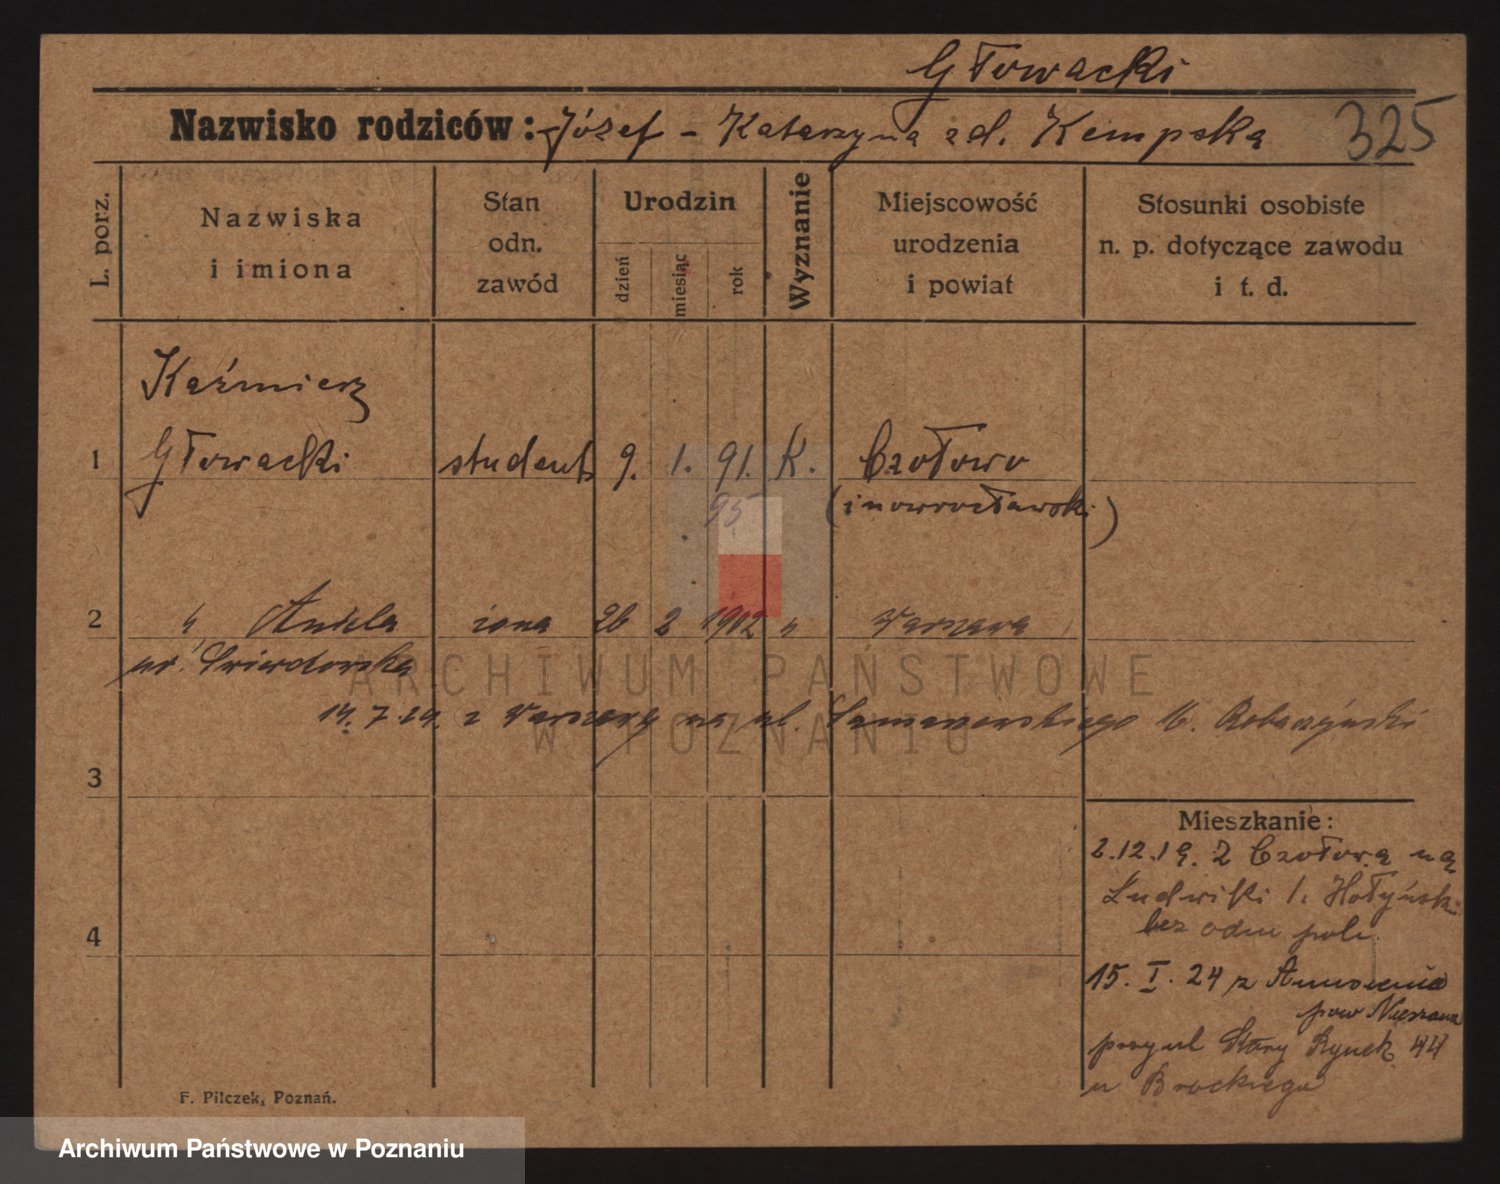 Głowacki
Nazwisko rodziców: Józef - Katarzyna zd. Kempska
325
L. porz.
Nazwiska
i imiona
Stan
odn.
zawód
Urodzin
dzień
miesiąc
rok
Wyznanie
Miejscowość
urodzenia
i powiat
Stosunki osobiste
n. p. dotyczące zawodu
i t. d.
Kaźmierz
1 Głowacki student 9. 1. 91. K. Czołowo
95 (inowrocławski)
2 " Aniela żona 26 2 1902 " Warszawa
ur.
14.7.24. z Warszawy na ul.
3
Mieszkanie:
2.12.19. z Czołowa na
Ludwiki 1. Hołyńsk
bez odm poli
4
15. I. 24 z
pow Nieszawa
przy ul Stary Rynek 44
u Brockiego
F. Pilczek, Poznań.
ARCHIWUM PAŃSTWOWE
W POZNANIU
Archiwum Państwowe w Poznaniu